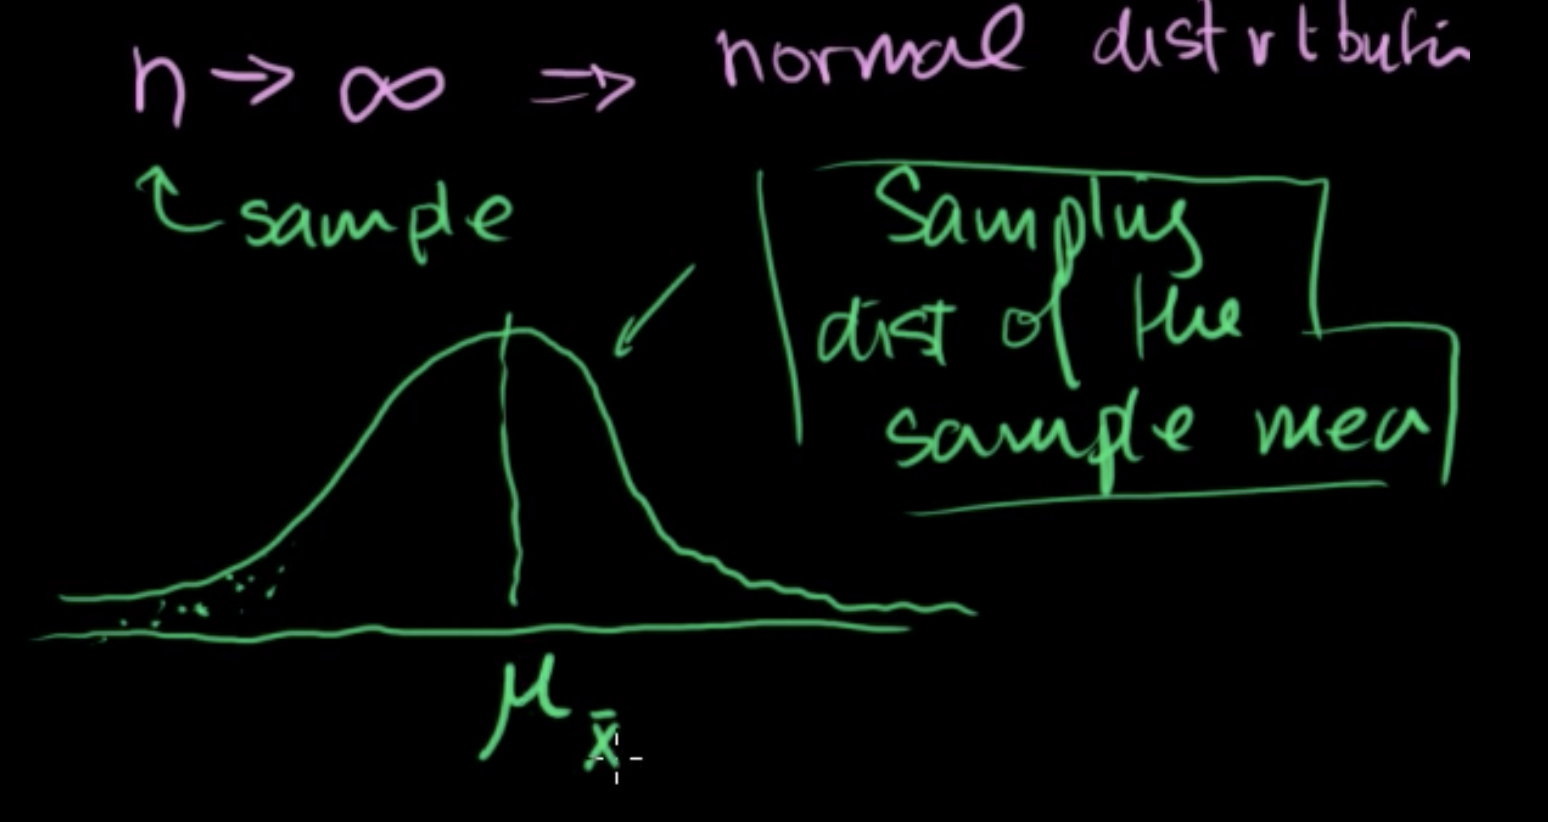 n → ∞ ⇒ normal distribution
sample
Sampling
dist of the
sample mea
μ x̄